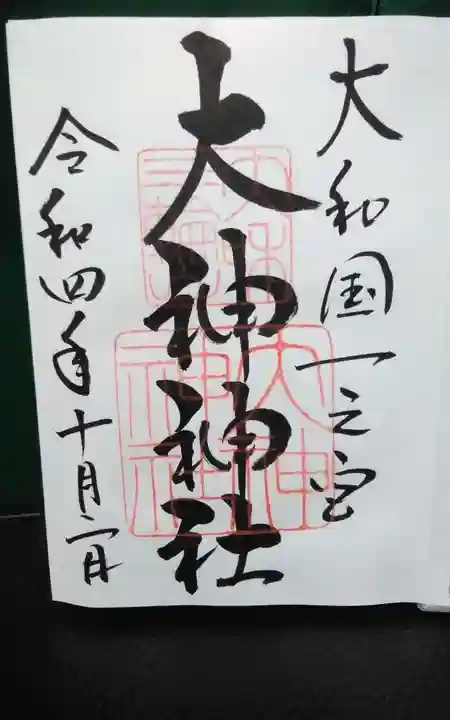 大和国一之宮
大神神社
令和四年十月二日
大神
神社